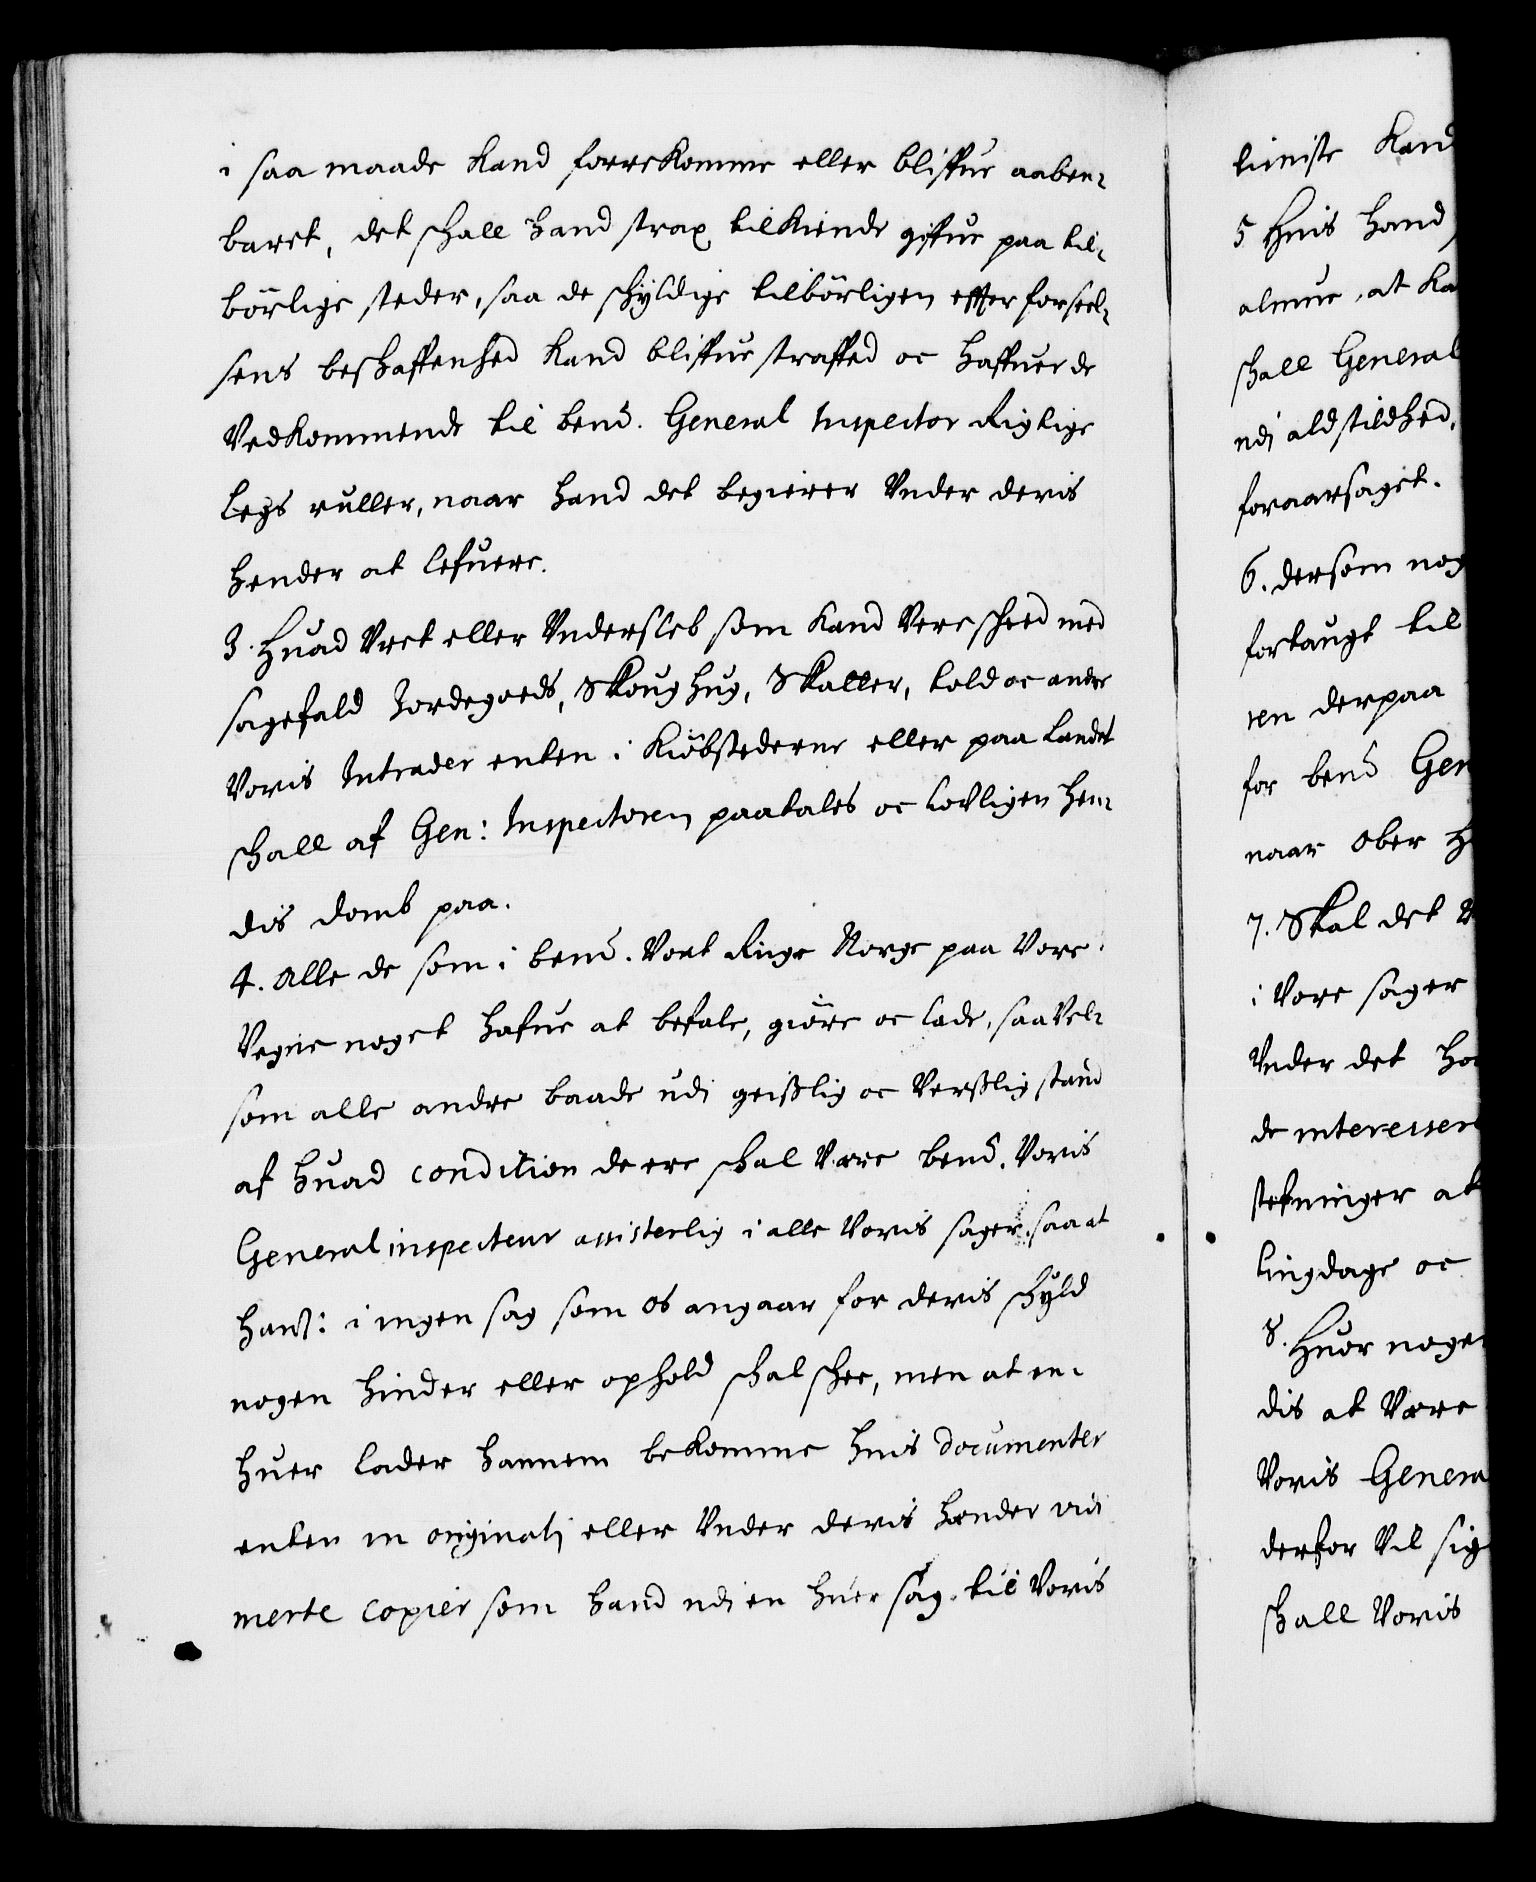 i saa maade Kand forrekomme eller bliffue aaben-
baret, det schall hand strax tilkiende giffue paa til-
börlige steder, saa de schyldige tilbörligen effter forseel-
sens beskaffenhed Kand bliffue straffed oc haffuer de
Vedkommende til bemt. General Inspector Rigtige
Legs ruller, naar hand det begierer Vnder deris
hender at lefuere.
3. Huad Vret eller Vndersleb som Kand Vere scheed med
sagefald Jordegoeds, Skoug hug, Skatter, told oc andre
Voris Intrader enten i Kiöbstederne eller paa Landet
schall af Gen: Inspectoren paatales oc Lovligen hen-
dis domb paa.
4. Alle de som i bemt. Vort Rige Norge paa Vore
Vegne noget hafue at befale, giöre oc lade, saa Vel-
som alle andre baade udi geistlig oc Verslig stand
af huad condition de ere schal Være bemt. Voris
General inspecteur assisterlig i alle Voris sager, saa at
hant: i ingen sag som os angaar for deris schyld
nogen hinder eller ophold schal schee, men at en-
huer lader hannem bekomme huis documenter
enten in originali eller Vnder deris hænder vidi
merte copier som hand udi en huer sag til Voris
tieniste Kand
5 Huis hand
almue, at Ka
schall General
udi aldstildhed,
foraarsaget.
6. dersom nog
fortaugt til
ren derpaa
for bemt Gen
naar Ober H
7. Skal det V
i Vore sager
Vnder det ha
de interesser
stefninger at
tingdage oc
8. Huor noge
dis at Være
Voris Genera
derfor Vil sig
schall Voris